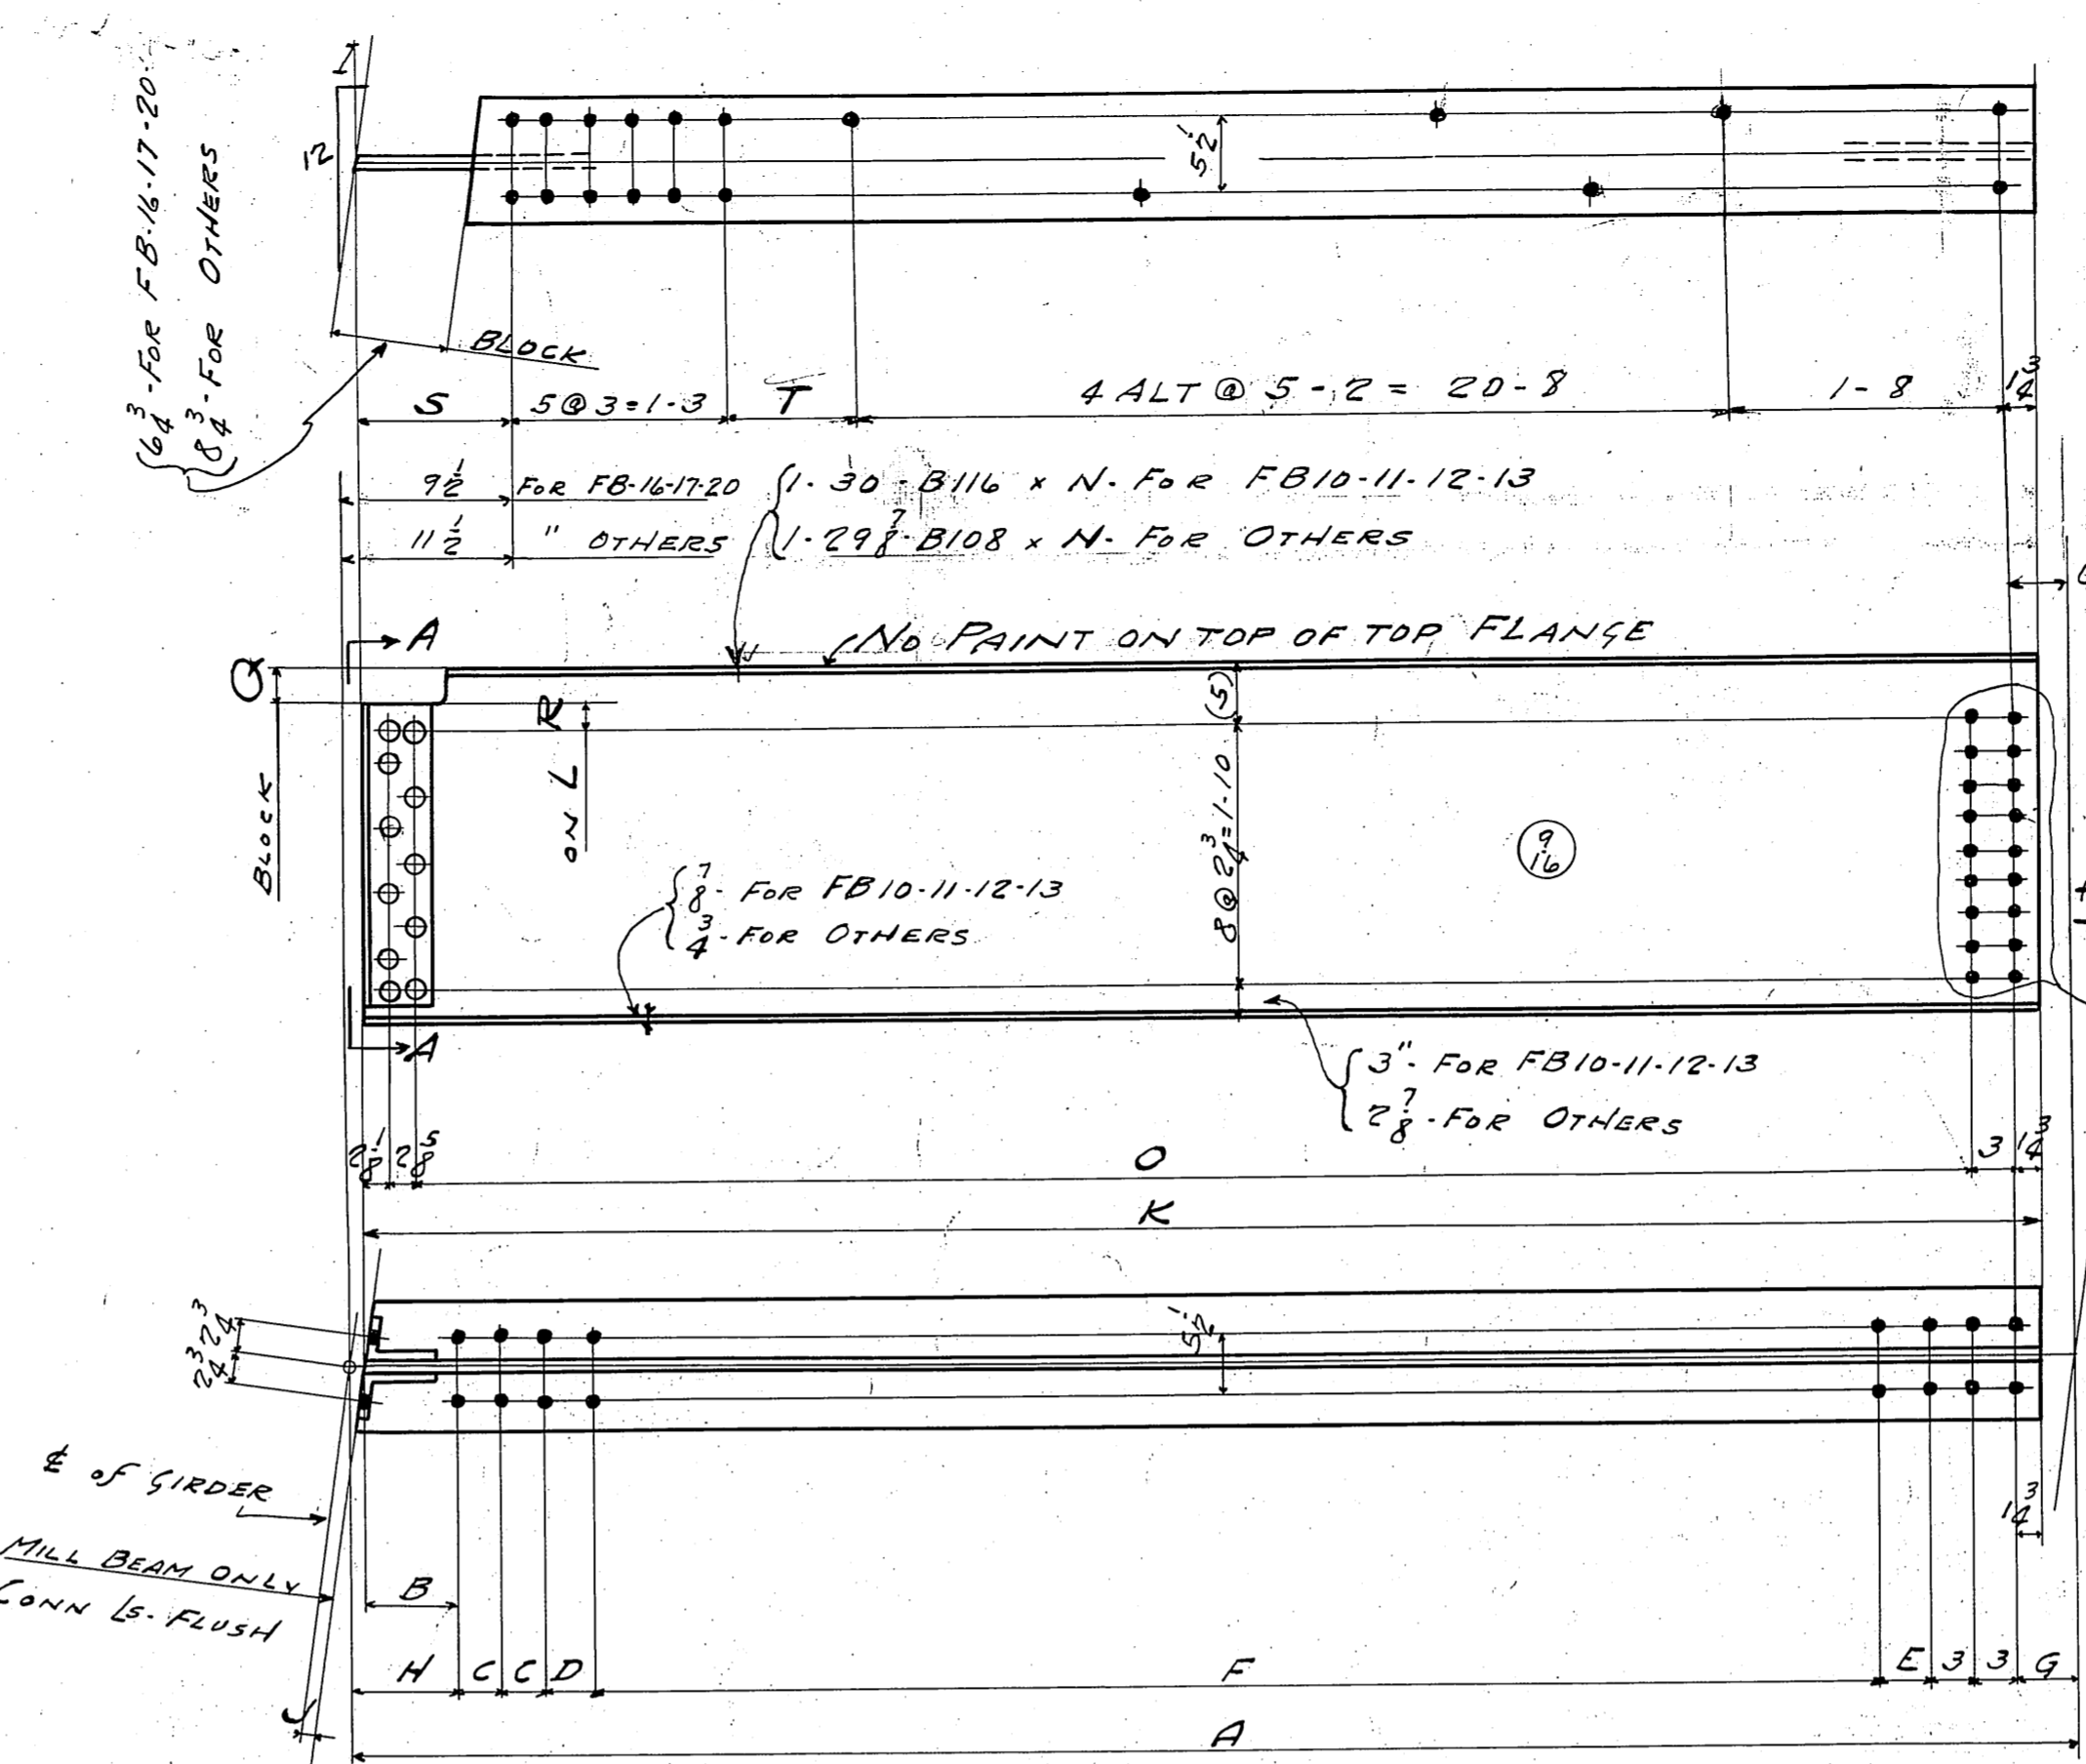 1
12
6 3/4 - FOR FB-16-17-20
8 3/4 - FOR OTHERS
5 1/2
BLOCK
S
5 @ 3 = 1-3
T
4 ALT @ 5-2 = 20-8
1-8
1 3/4
9 1/2 FOR FB-16-17-20
11 1/2 " OTHERS
1-30-B116 x N- FOR FB10-11-12-13
1-29 7/8-B108 x N- FOR OTHERS
NO PAINT ON TOP OF TOP FLANGE
A
Q
BLOCK
R
ON L
(5)
8 @ 2 3/4 = 1-10
9/16
7/8 - FOR FB10-11-12-13
3/4 - FOR OTHERS
A
3" - FOR FB10-11-12-13
2 7/8 - FOR OTHERS
2 1/8
2 5/8
O
3
1 3/4
K
2 3/4
2 3/4
5 1/2
℄ OF GIRDER
MILL BEAM ONLY
CONN Ls. FLUSH
1 3/4
B
H
C
C
D
F
E
3
3
G
J
A